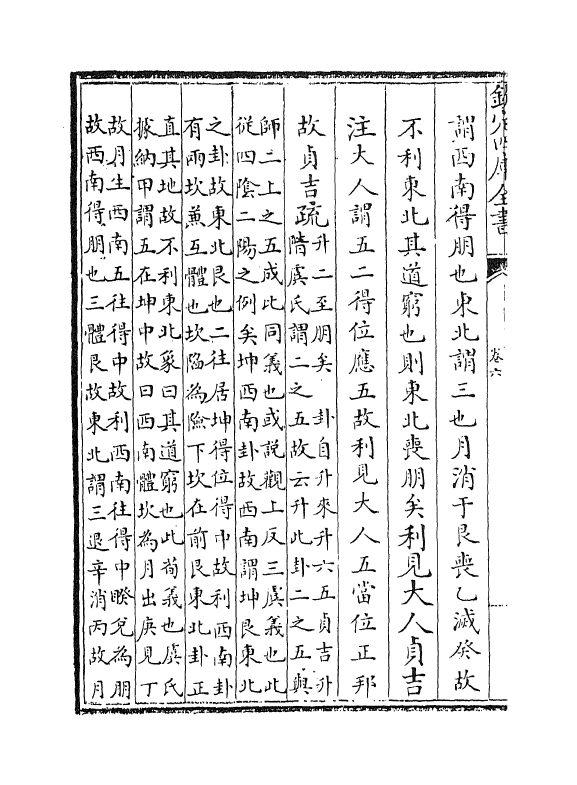 欽定四庫全書
卷六
謂西南得朋也東北謂三也月消于艮喪乙滅癸故
不利東北其道窮也則東北喪朋矣利見大人貞吉
注大人謂五二得位應五故利見大人五當位正邦
故貞吉疏
升二至朋矣　卦自升來升六五貞吉升
階虞氏謂二之五故云升此卦二之五與
師二上之五成比同義也或說觀上反三虞義也此
從四陰二陽之例矣坤西南卦故西南謂坤艮東北
之卦故東北艮也二往居坤得位得中故利西南卦
有兩坎兼互體也坎陷為險下坎在前艮東北卦正
直其地故不利東北彖曰其道窮也此荀義也虞氏
據納甲謂五在坤中故曰西南體坎為月出庚見丁
故月生西南五往得中故利西南往得中睽兌為朋
故西南得朋也三體艮故東北謂三退辛消丙故月